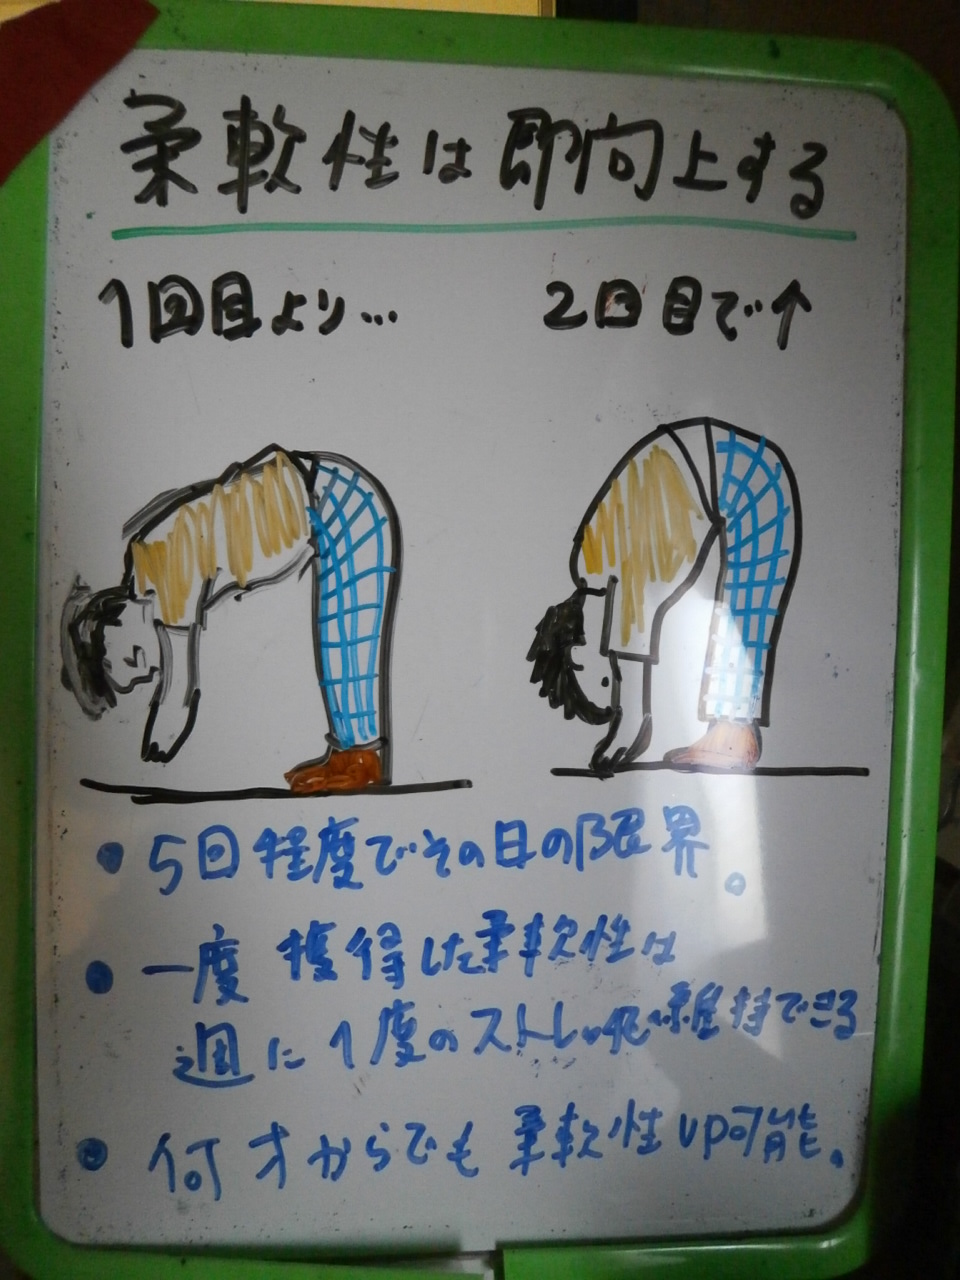 柔軟性は即向上する
1回目より… 2回目で↑
• 5回程度でその日の限界。
• 一度獲得した柔軟性は
週に1度のストレッチで維持できる
• 何才からでも柔軟性up可能。